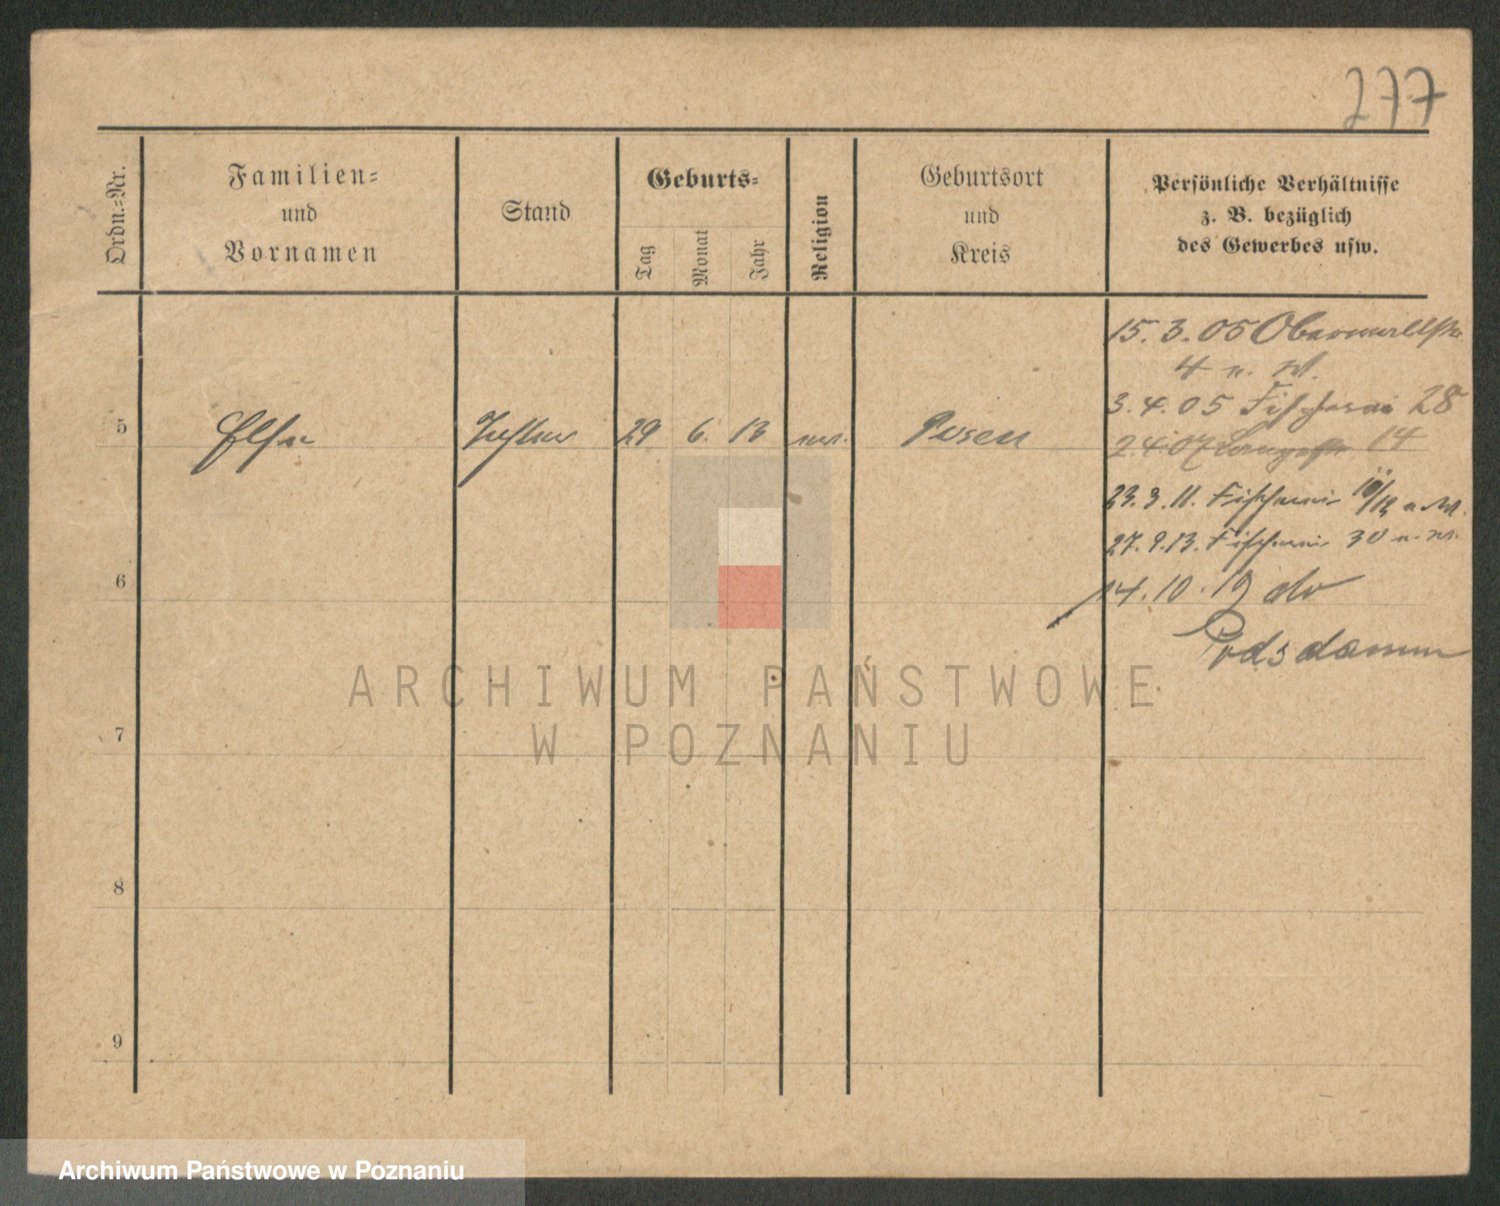 277
Ordn.-Nr.
Familien-
und
Vornamen
Stand
Geburts-
Tag
Monat
Jahr
Religion
Geburtsort
und
Kreis
Persönliche Verhältnisse
z. B. bezüglich
des Gewerbes usw.
15. 3. 05 Oberwallstr.
4 n. W.
3. 4. 05 Fischerei 28
5 Else Tochter 29 6. 13 ev. Posen
2 4 07 14
23. 3. 11. Fischerei
27. 9. 13. Fischerei 30
6
14. 10. 19
Podsdamm
7
8
9
ARCHIWUM PAŃSTWOWE
W POZNANIU
Archiwum Państwowe w Poznaniu